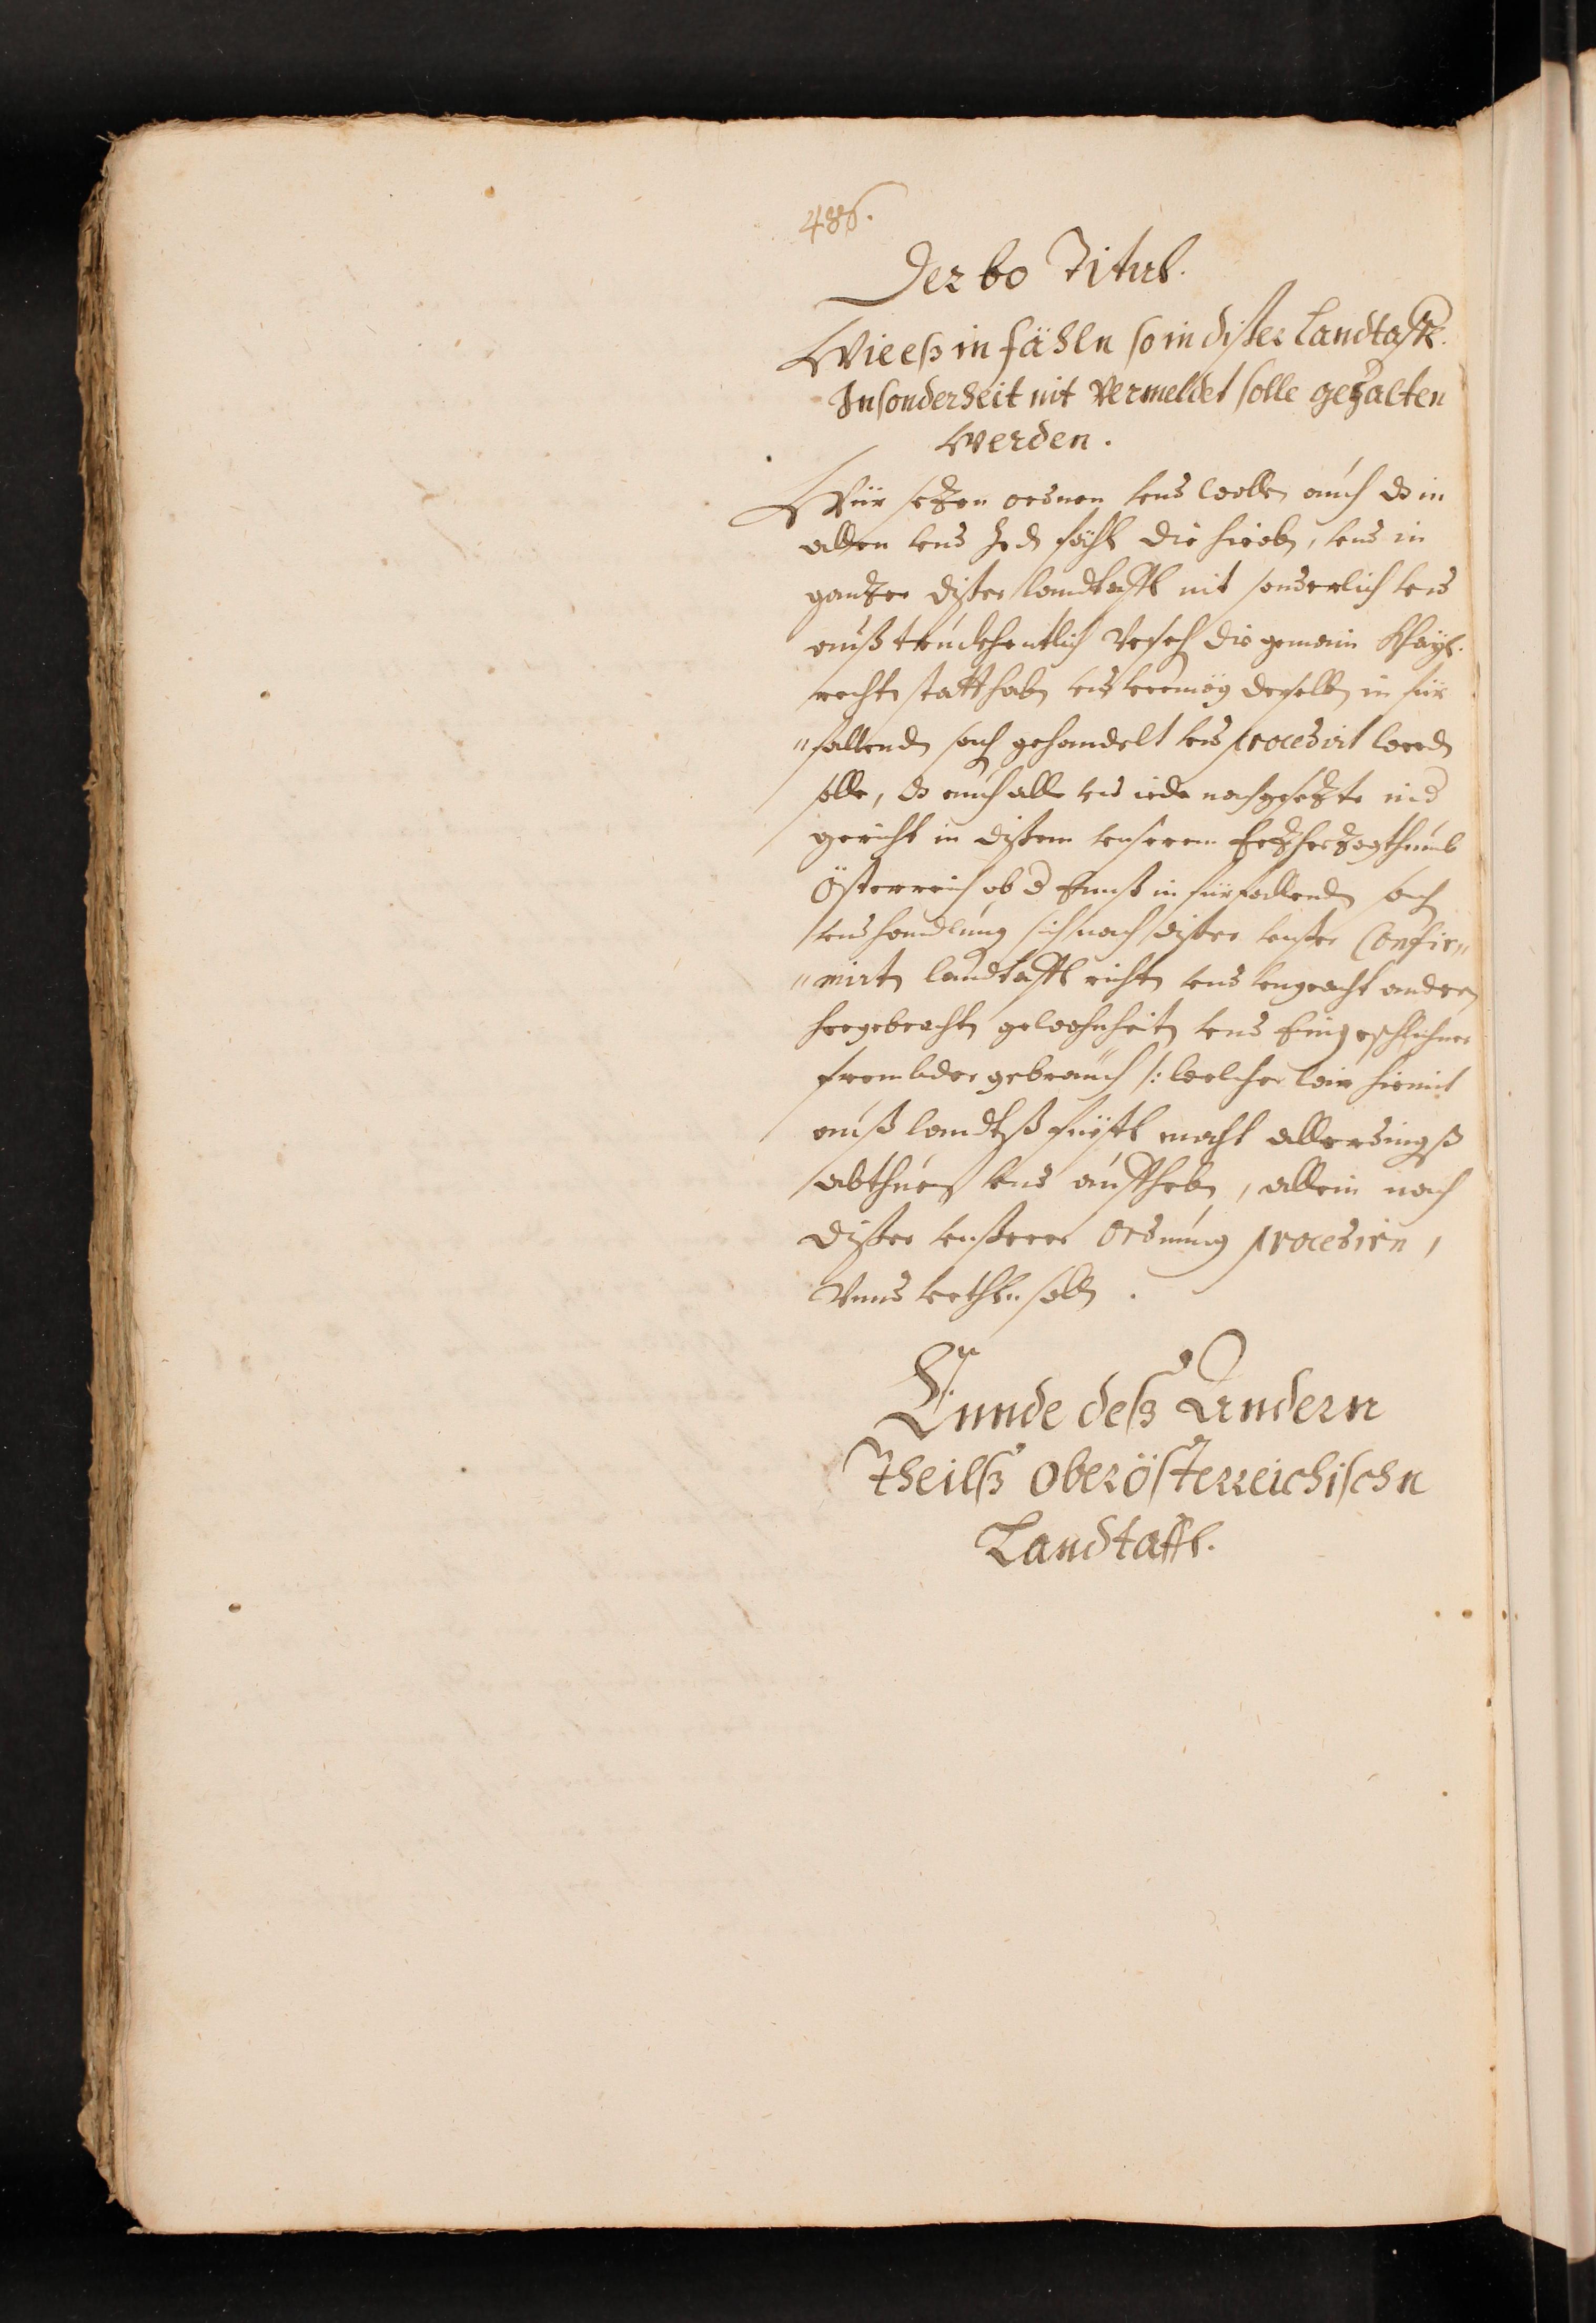 486.
Der 60 Titul.
Wie eß in fähln so in dißer Landtaffl.
Insonderheit nit Vermeldet solle gehalten
werden.
Wür sezen ordnen vnd wollen auch ds in
allen vnd Jedn fähl die hieobn, vnd in
ganzer dißer landtaffl nit sonderlich vnd
außtrukhentlich Versehn die gemain Khayl.
rechte statt habn vnd vermög derselbn in für
"fallendn sachn gehandelt vnd procedirt werdn
solle, ds auch alle vnd iede nachgesezte nid
gericht in dißem vnserem Erzherzogthumb
Österreich ob d Ennß in fürfallendn sachn
vnd handlung sich nach dißer vnßer Confir"
"mirtn landtaffl richtn vnd vngeacht anderer
hergebrachtn gewohnheitn vnd Eingeschlichner
frembder gebrauch /: welcher wir hiemit
auß landtßfürstl macht allerdingß
abthuen vnd auffhebn, allein nach
dißer vnßerer Ordnung procedirn,
Vnnd vrthln solln.
Ennde deß Andern
Theilß oberösterreichischn
Landtaffl.